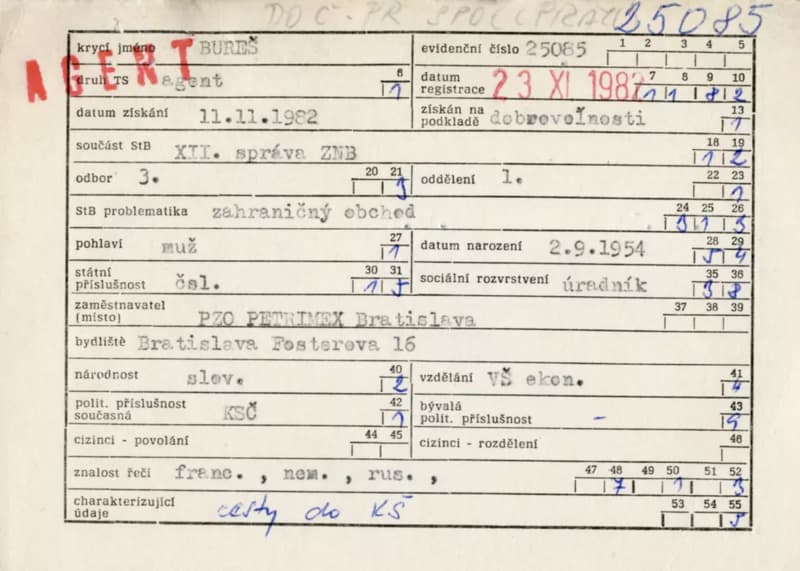 DO Č-PR SPOLUPRÁCI 25085
AGENT
krycí jméno BUREŠ evidenční číslo 25085 1 2 3 4 5
druh TS agent 6 1 datum registrace 23 XI 1982 7 8 9 10 1 1 8 2
datum získání 11.11.1982 získán na podkladě dobrovolnosti 13 1
součást StB XII. správa ZNB 18 19 1 2
odbor 3. 20 21 3 oddělení 1. 22 23 1
StB problematika zahraničný obchod 24 25 26 3 1 3
pohlaví muž 27 1 datum narození 2.9.1954 28 29 5 4
státní příslušnost čsl. 30 31 1 5 sociální rozvrstvení úradník 35 36 3 8
zaměstnavatel (místo) PZO PETRIMEX Bratislava 37 38 39
bydliště Bratislava Fosterova 16
národnost slov. 40 2 vzdělání VŠ ekon. 41 4
polit. příslušnost současná KSČ 42 1 bývalá polit. příslušnost - 43 9
cizinci - povolání 44 45 cizinci - rozdělení 46
znalost řečí franc., nem., rus., 47 48 49 50 51 52 7 1 3
charakterizující údaje cesty do KŠ 53 54 55 5